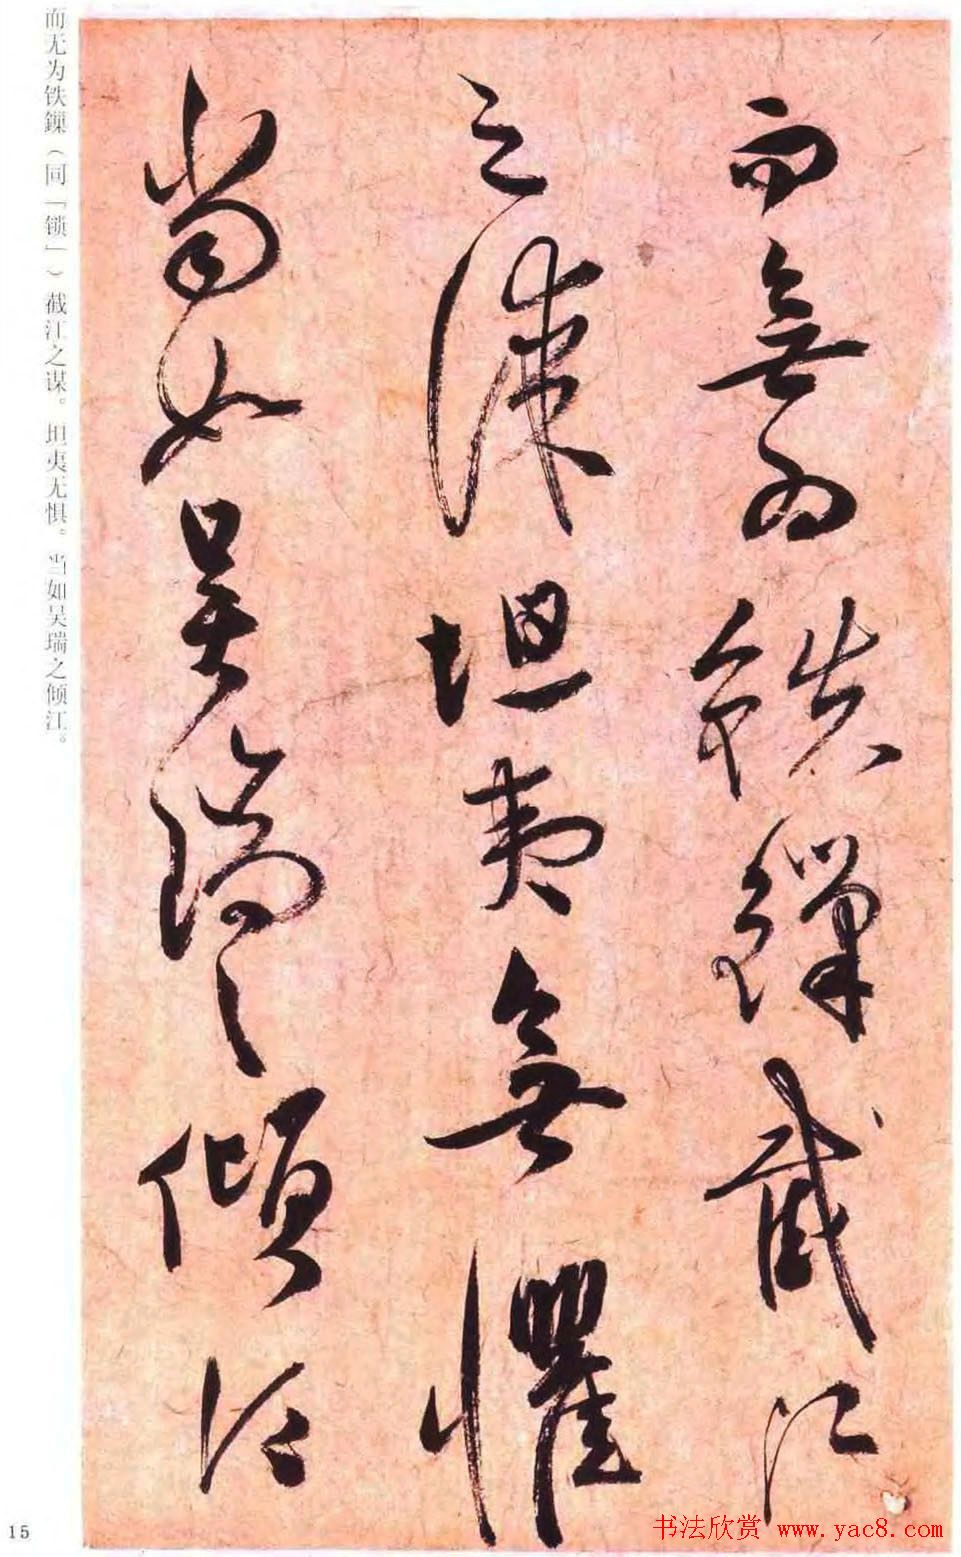 而無為鐵鏁截江
之謀坦夷無懼
當如吳瑞之傾江
而无为铁鏁（同「锁」）截江之谋。坦夷无惧。当如吴瑞之倾江。
15
书法欣赏 www.yac8.com